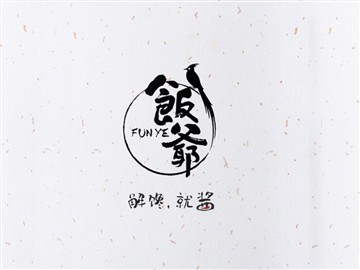 飯爺
FUNYE
解馋,就酱